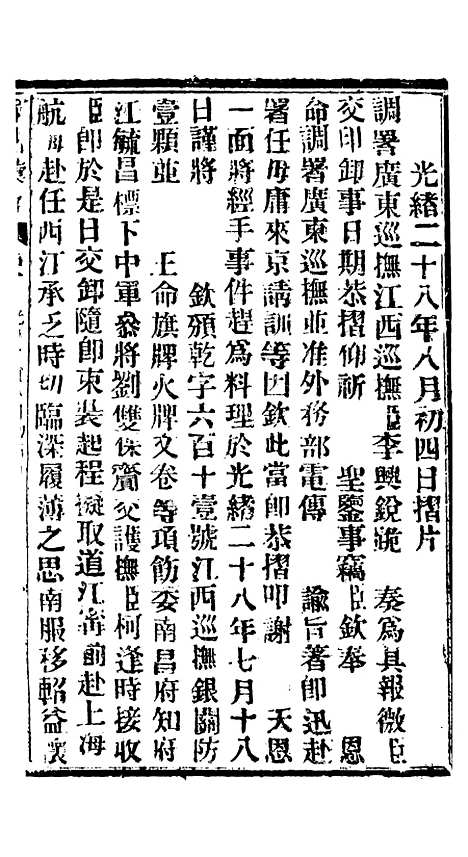 光緒二十八年八月初四日摺片
調署廣東巡撫江西巡撫臣李興銳跪　奏爲具報微臣
交印卸事日期恭摺仰祈　聖鑒事竊臣欽奉　恩
命調署廣東巡撫並准外務部電傳　諭旨著卽迅赴
署任毋庸來京請訓等因欽此當卽恭摺叩謝　天恩
一面將經手事件趕爲料理於光緒二十八年七月十八
日謹將　欽頒乾字六百十壹號江西巡撫銀關防
壹顆並　王命旗牌火牌文卷等項飭委南昌府知府
江毓昌標下中軍叅將劉雙保賫交護撫臣柯逢時接收
臣卽於是日交卸隨卽束裝起程擬取道江甯前赴上海
航海赴任西江承乏時切臨深履薄之思南服移軺益懷